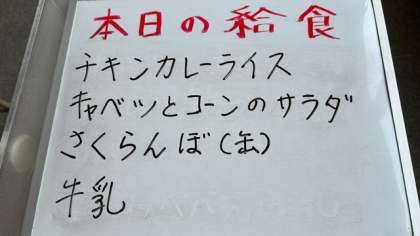 本日の給食
チキンカレーライス
キャベツとコーンのサラダ
さくらんぼ(缶)
牛乳